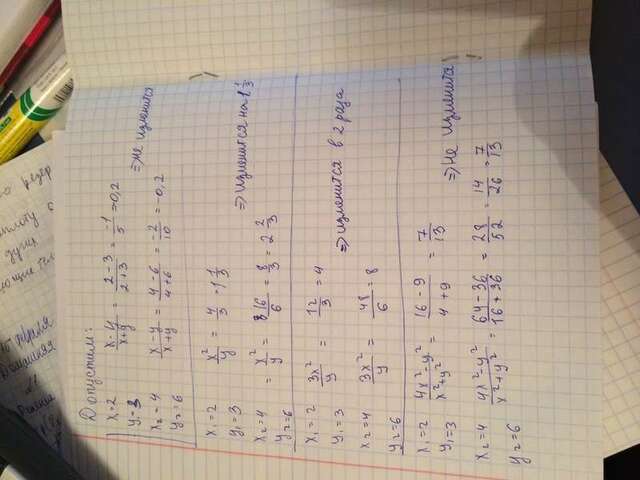 Допустим:
x=2
y=3
(x-y)/(x+y) = (2-3)/(2+3) = -1/5 = -0,2
x₂=4
y₂=6
(x-y)/(x+y) = (4-6)/(4+6) = -2/10 = -0,2
=> не изменится
x₁=2
y₁=3
x²/y = 4/3 = 1 1/3
x₂=4
y₂=6
= x²/y = 16/6 = 8/3 = 2 2/3
=> изменится на 1 1/3
x₁=2
y₁=3
3x²/y = 12/3 = 4
x₂=4
y₂=6
3x²/y = 48/6 = 8
=> изменится в 2 раза
x₁=2
y₁=3
(4x²-y²)/(x²+y²) = (16-9)/(4+9) = 7/13
x₂=4
y₂=6
(4x²-y²)/(x²+y²) = (64-36)/(16+36) = 28/52 = 14/26 = 7/13
=> не изменится